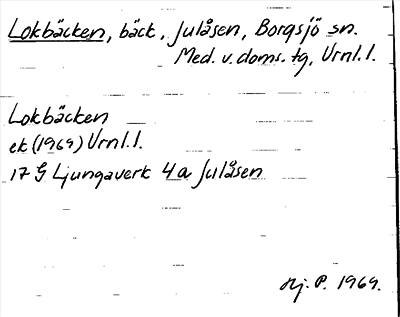 Lokbäcken, bäck, Julåsen, Borgsjö sn.
Med. v. doms. tg, Vrnl. l.
Lokbäcken
ek (1969) Vrnl. l.
17 G Ljungaverk 4a Julåsen
Hj. P. 1969.